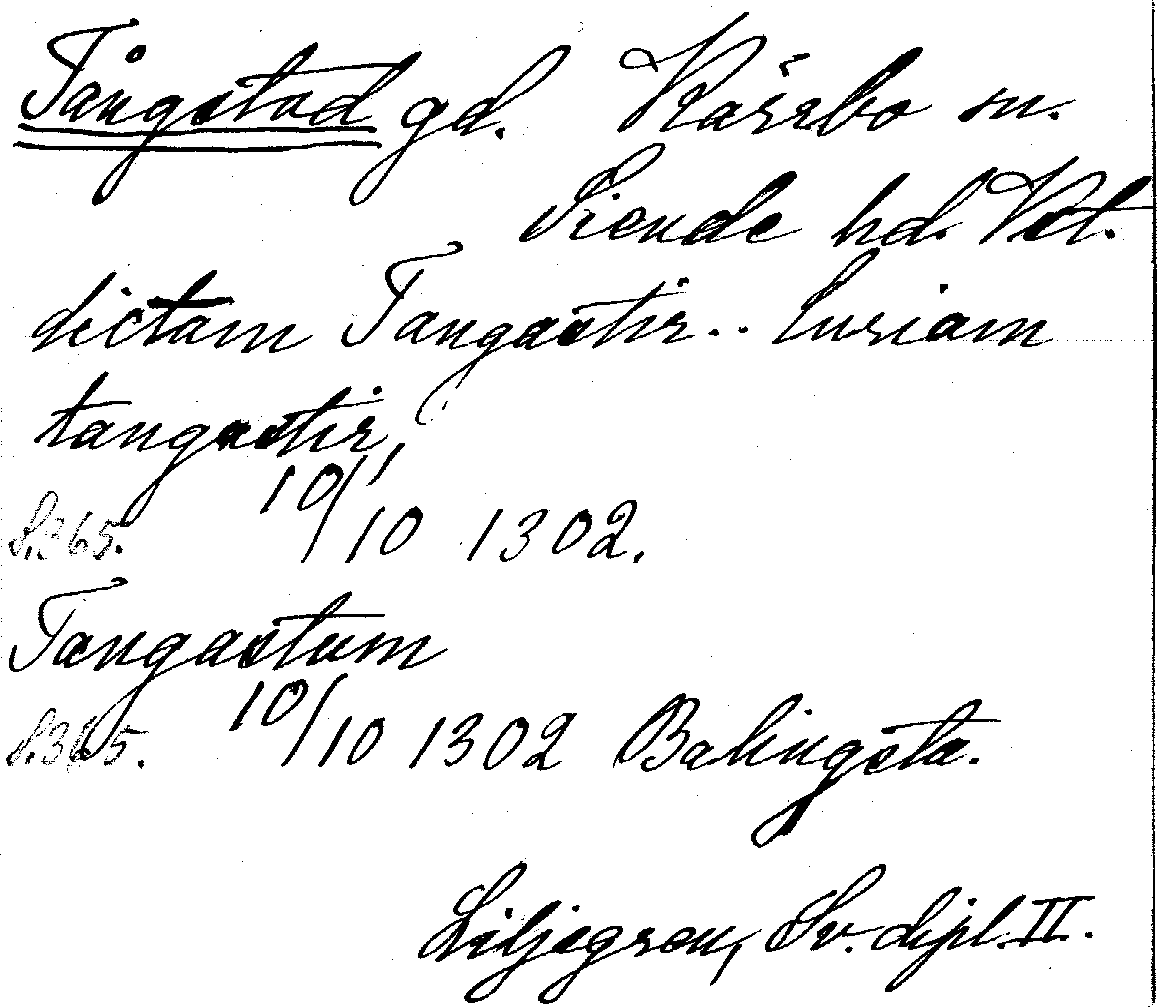 Tångstad gd. Kärrbo sn.
Siende hd. Vstl.
dictam Tangastir.. Curiam
tangastir,
S.365. 10/10 1302.
Tangastum
S.365. 10/10 1302 Balingsta.
Liljegren, Sv. dipl. II.